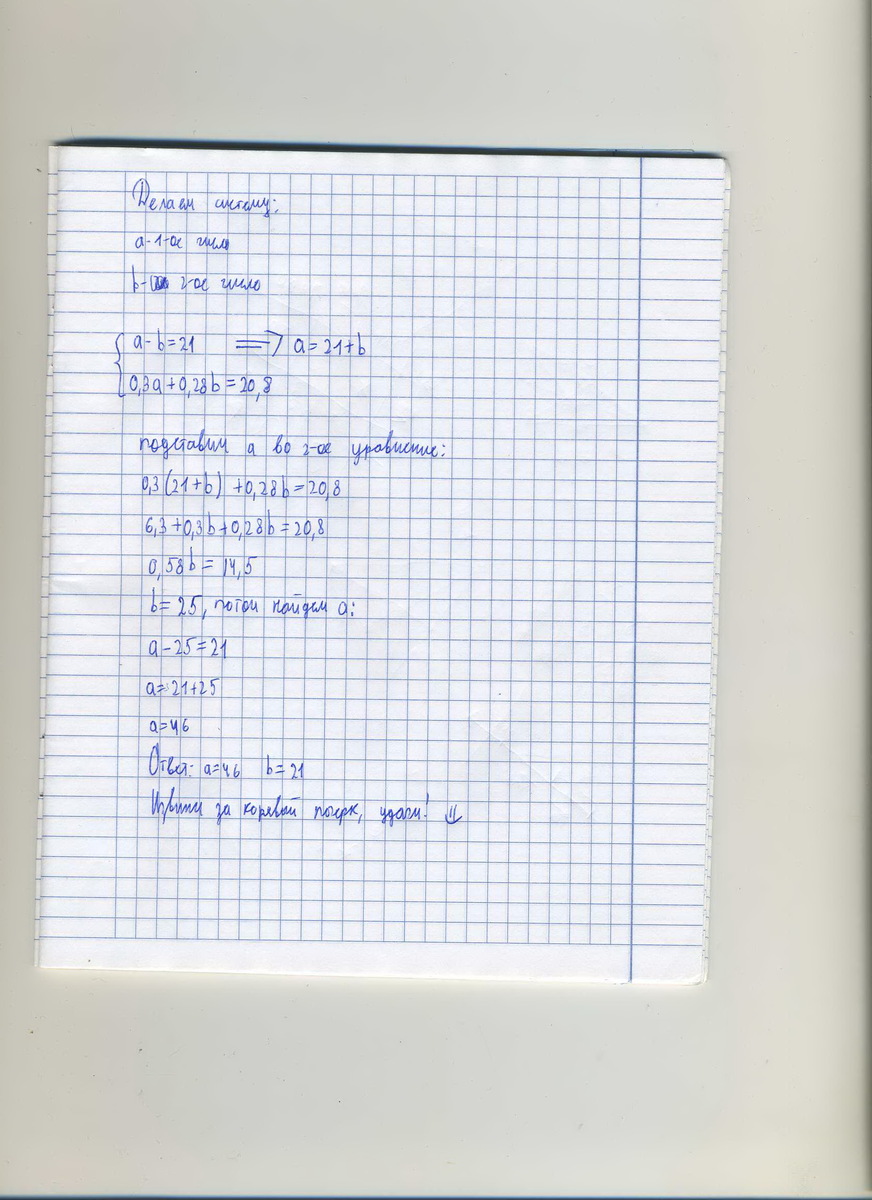 Делаем систему:
a-1-ое число
b- 2-ое число
a-b=21 ⟹ a=21+b
0,3a+0,28b=20,8
подставим a во 2-ое уравнение:
0,3(21+b)+0,28b=20,8
6,3+0,3b+0,28b=20,8
0,58b=14,5
b=25, потом найдем a:
a-25=21
a=21+25
a=46
Ответ: a=46 b=21
Извини за корявый почерк, удачи!